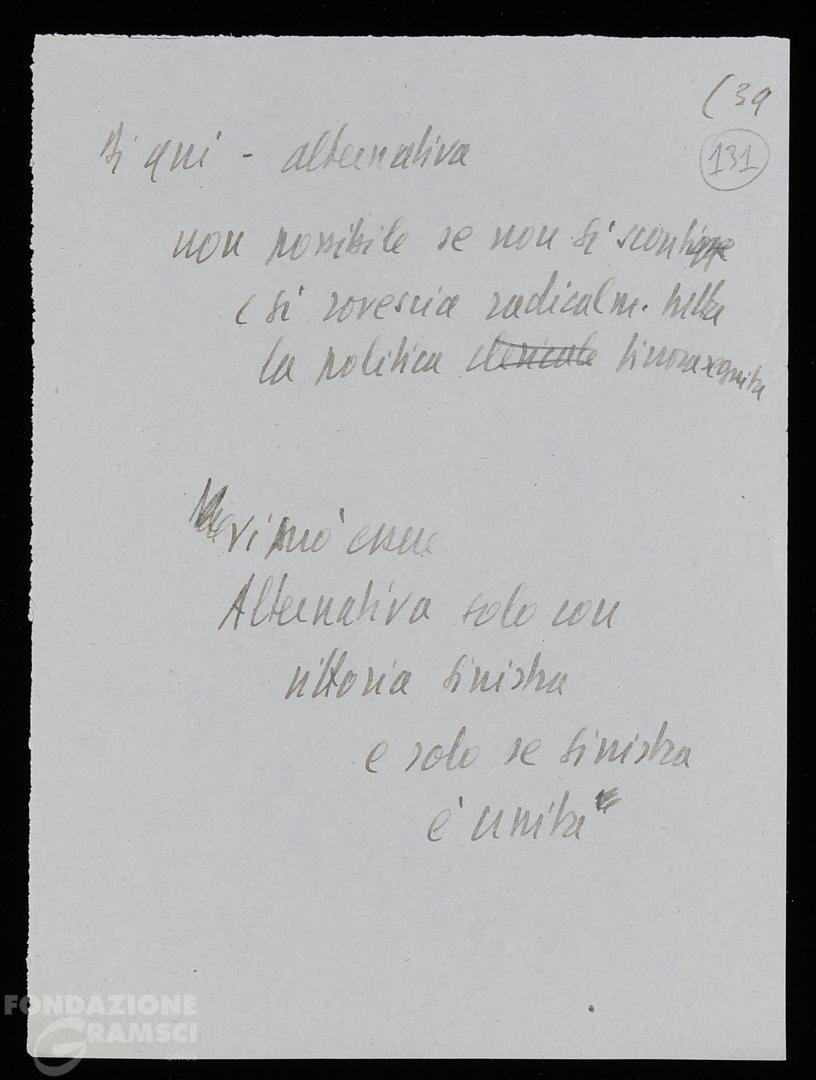 (39
131
Di qui - alternativa
non possibile se non si sconfigge
(si rovescia radicalm. tutta
la politica clericale sinora seguita
vi può essere
Alternativa solo con
vittoria sinistra
e solo se sinistra
è unita
FONDAZIONE
GRAMSCI
onlus